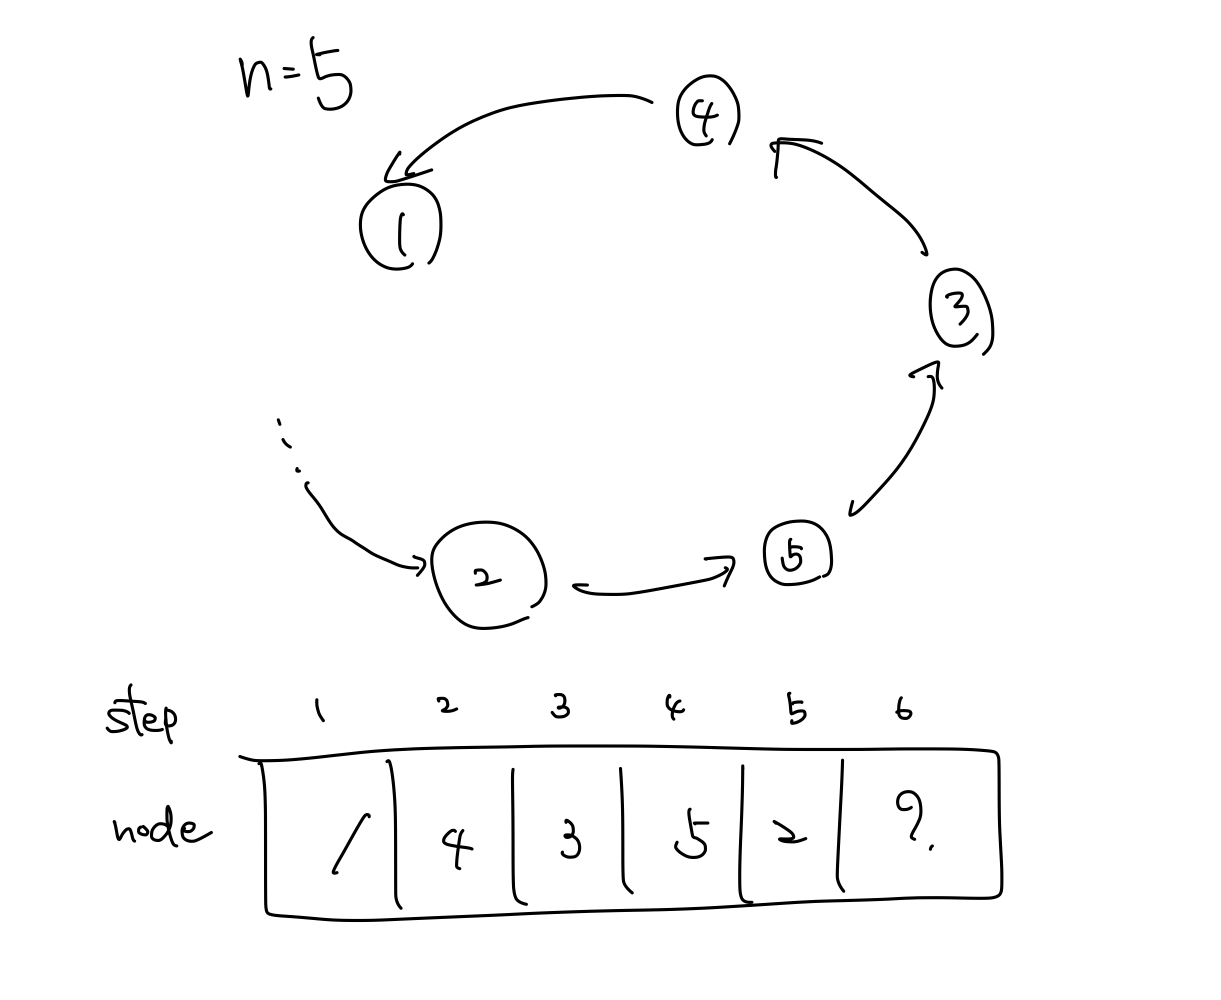 n=5
4
1
3
2
5
step 1 2 3 4 5 6
node / 4 3 5 2 ?